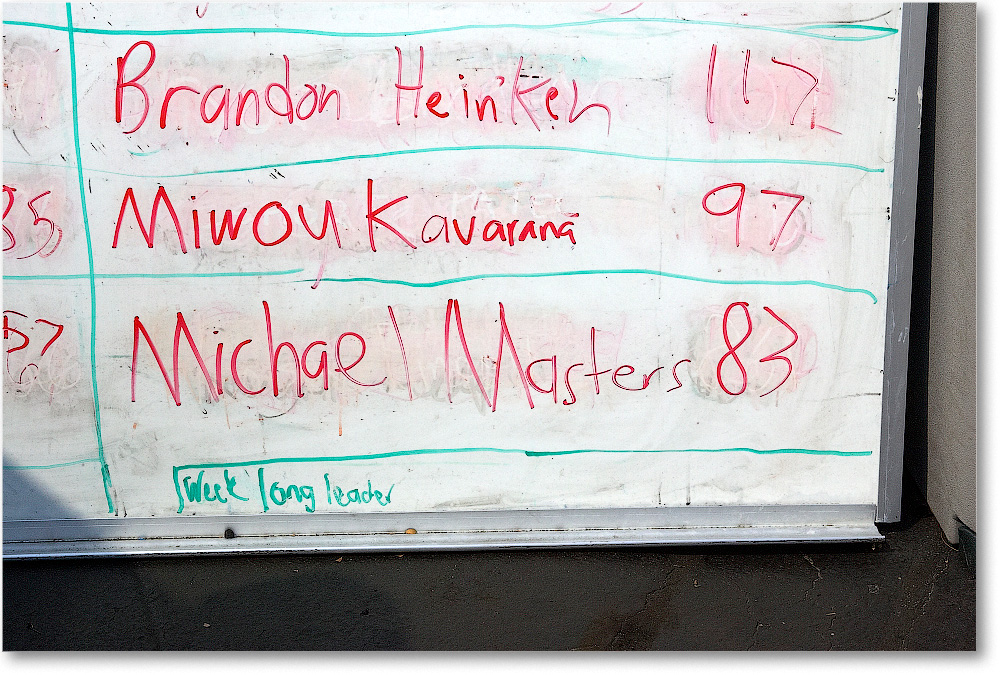 Brandon Heinken 117
85 Miwou Kavarana 97
57 Michael Masters 83
Week long leader